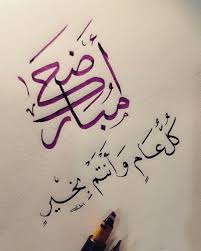 أضحى
مبارك
كُلُّ عَامٍ وَأَنْتُمْ بِخَيْرٍ